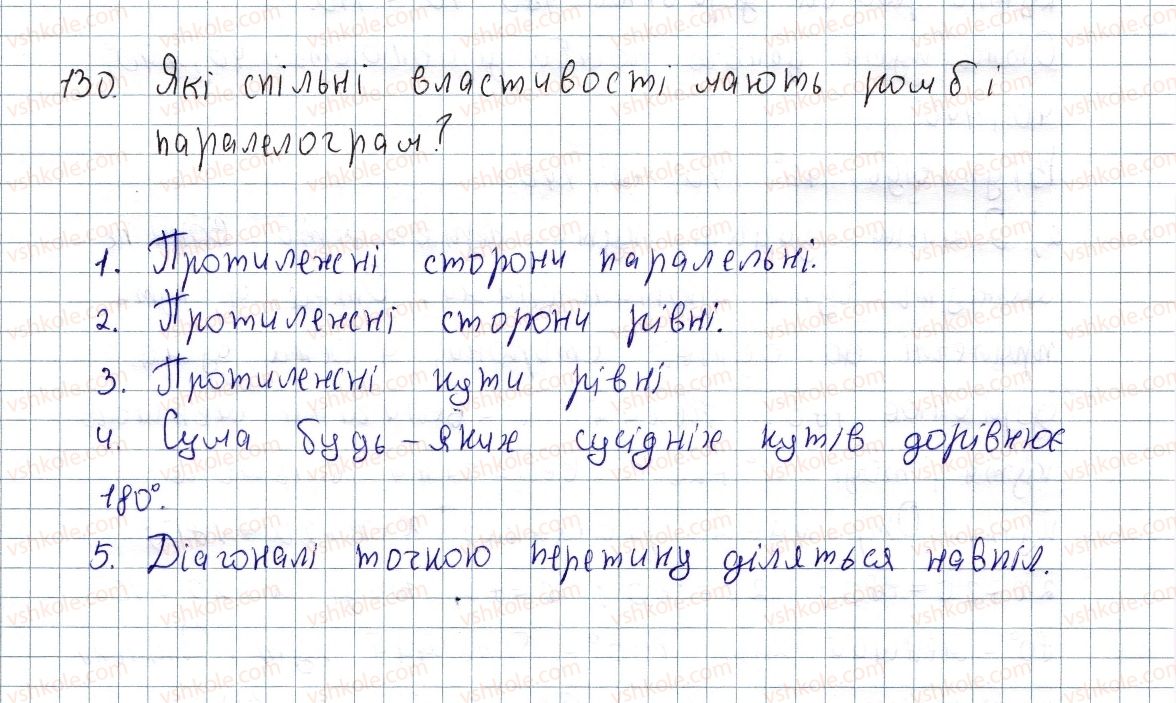 130. Які спільні властивості мають ромб і
паралелограм?
1. Протилежні сторони паралельні.
2. Протилежні сторони рівні.
3. Протилежні кути рівні
4. Сума будь-яких сусідніх кутів дорівнює
180°.
5. Діагоналі точкою перетину діляться навпіл.